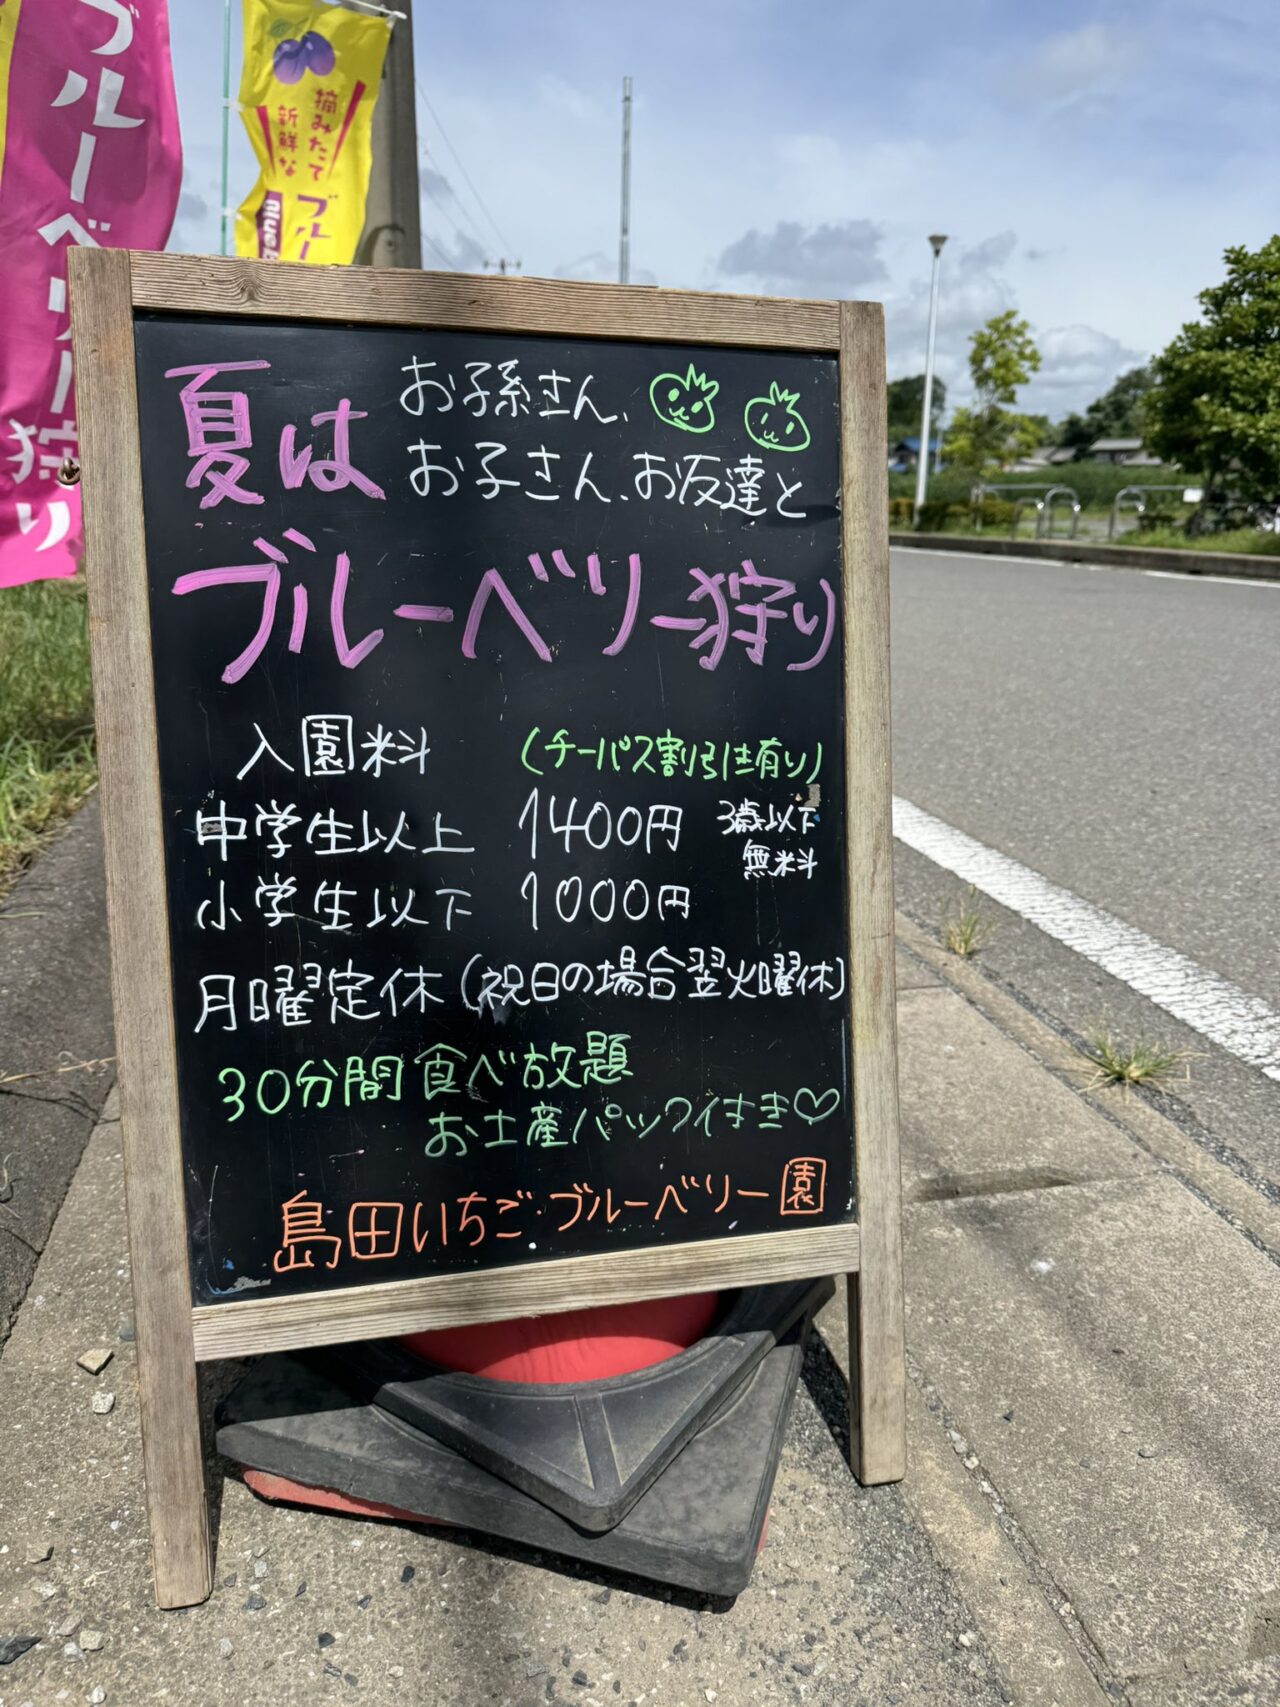 ブルーベリー狩り
摘みたて
新鮮な
ブルー
夏は
お子孫さん、
お子さん、お友達と
ブルーベリー狩り
入園料
(チーパス割引き有り)
中学生以上 1400円
3歳以下
無料
小学生以下 1000円
月曜定休(祝日の場合翌火曜休)
30分間食べ放題
お土産パック付き♡
島田いちご・ブルーベリー園